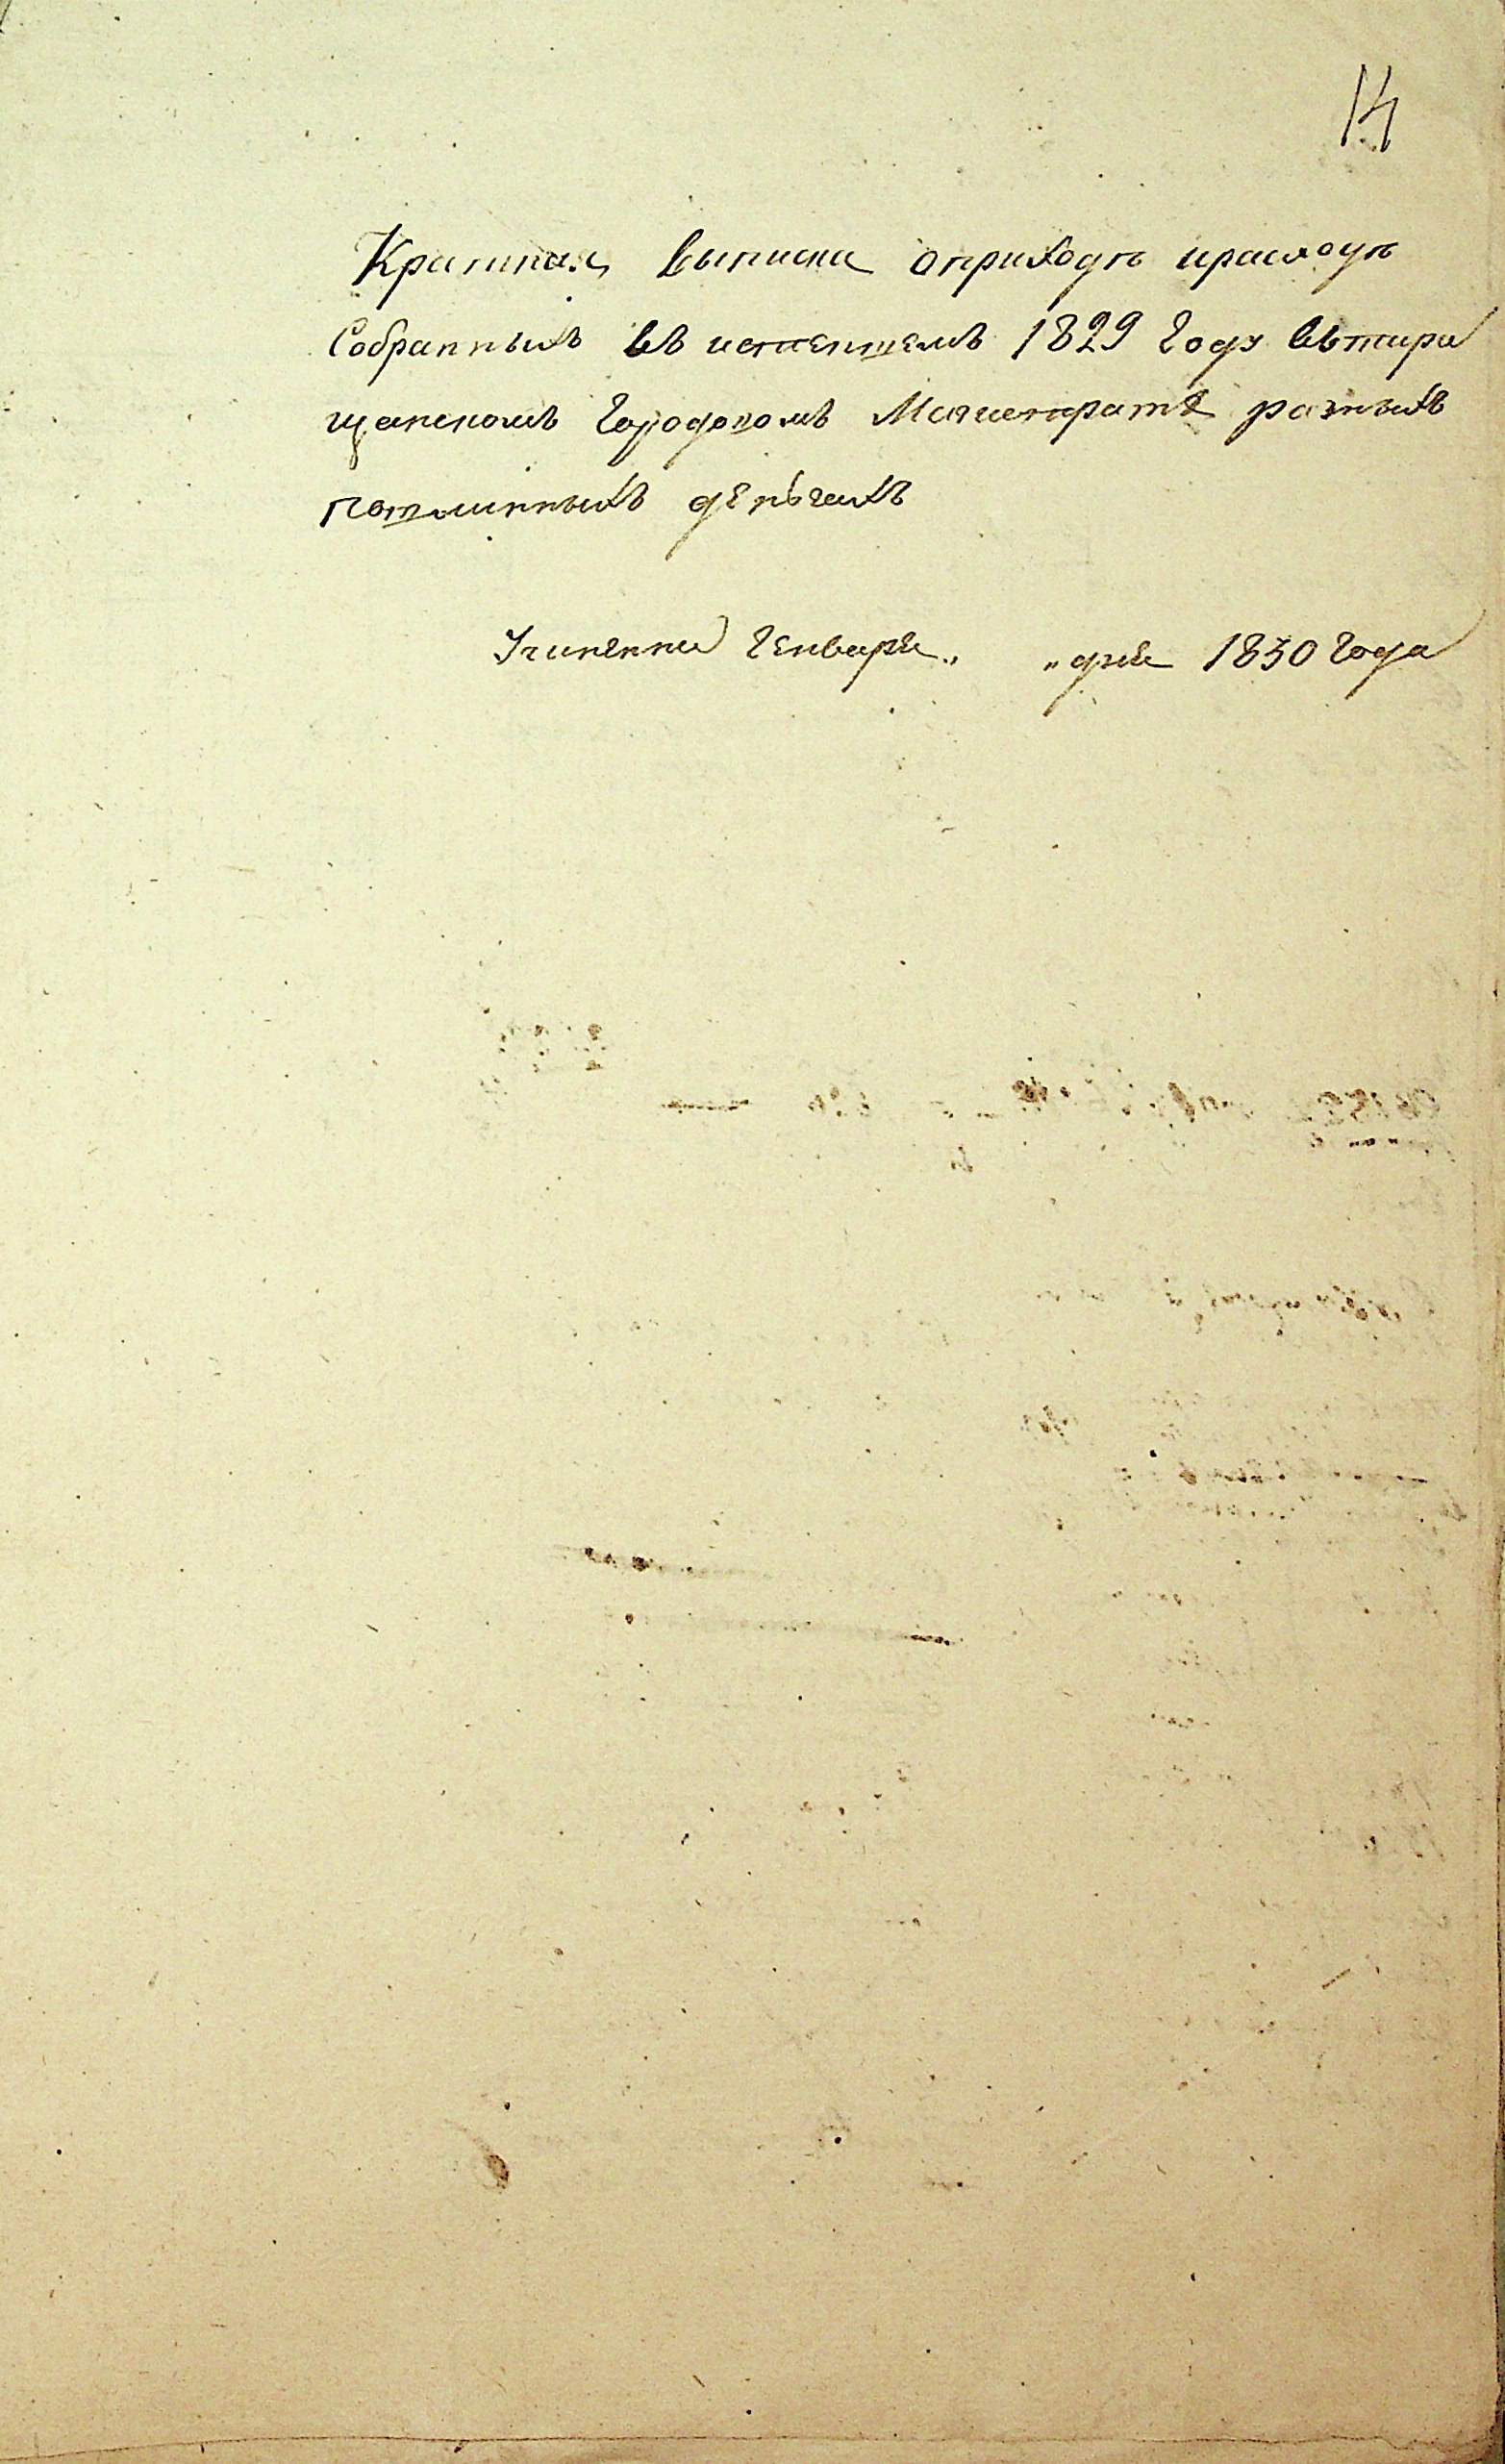 14
Краткая выписка оприходѣ ирасходѣ
Собранныхъ въ истекшемъ 1829 Году втира
щанскомъ Городовомъ Магистратѣ разныхъ
пошлинныхъ деньгахъ
Учиненна Генваря „ „ дня 1830 Года